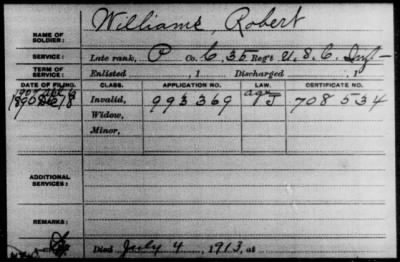 Williams, Robert
NAME OF
SOLDIER:
SERVICE:
Late rank, P Co. C, 35 Reg't U. S. C. Inf
TERM OF
SERVICE:
Enlisted , 1 Discharged , 1
DATE OF FILING.
CLASS.
APPLICATION NO.
LAW.
CERTIFICATE NO.
Invalid,
993 369
708 534
Widow,
Minor,
ADDITIONAL
SERVICES:
REMARKS:
Died July 4, 1913, at